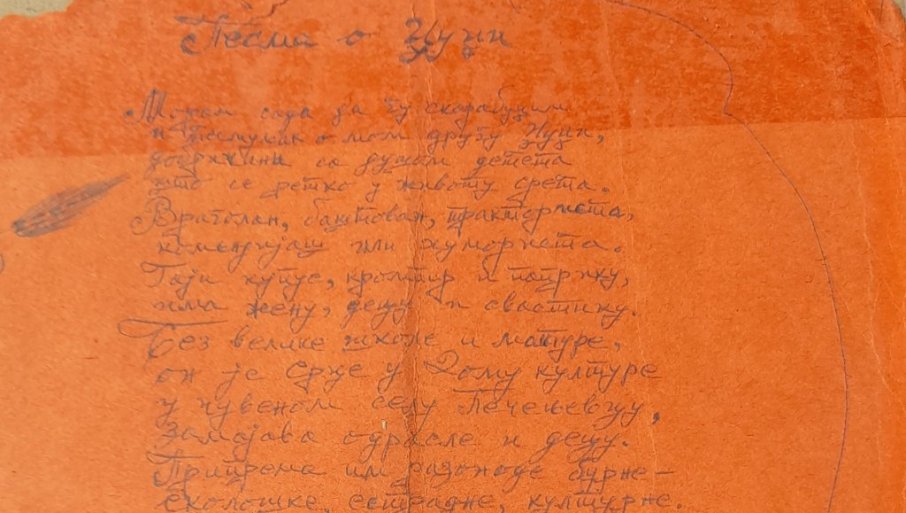 Песма о Цуци
Морам сада за ту
и о мом другу Цуци,
са душом детета
што се ретко у животу срета.
Вратолан, баштован, тракториста,
комендијаш или хумориста.
Гаји купус, кромпир и паприку,
има жену, децу и свастику.
Без велике школе и матуре,
он је срце у Дому културе
у чувеном селу Печењевцу,
Замајава одрасле и децу.
Припрема им разоноде бурне-
еколошке, естрадне, културне.